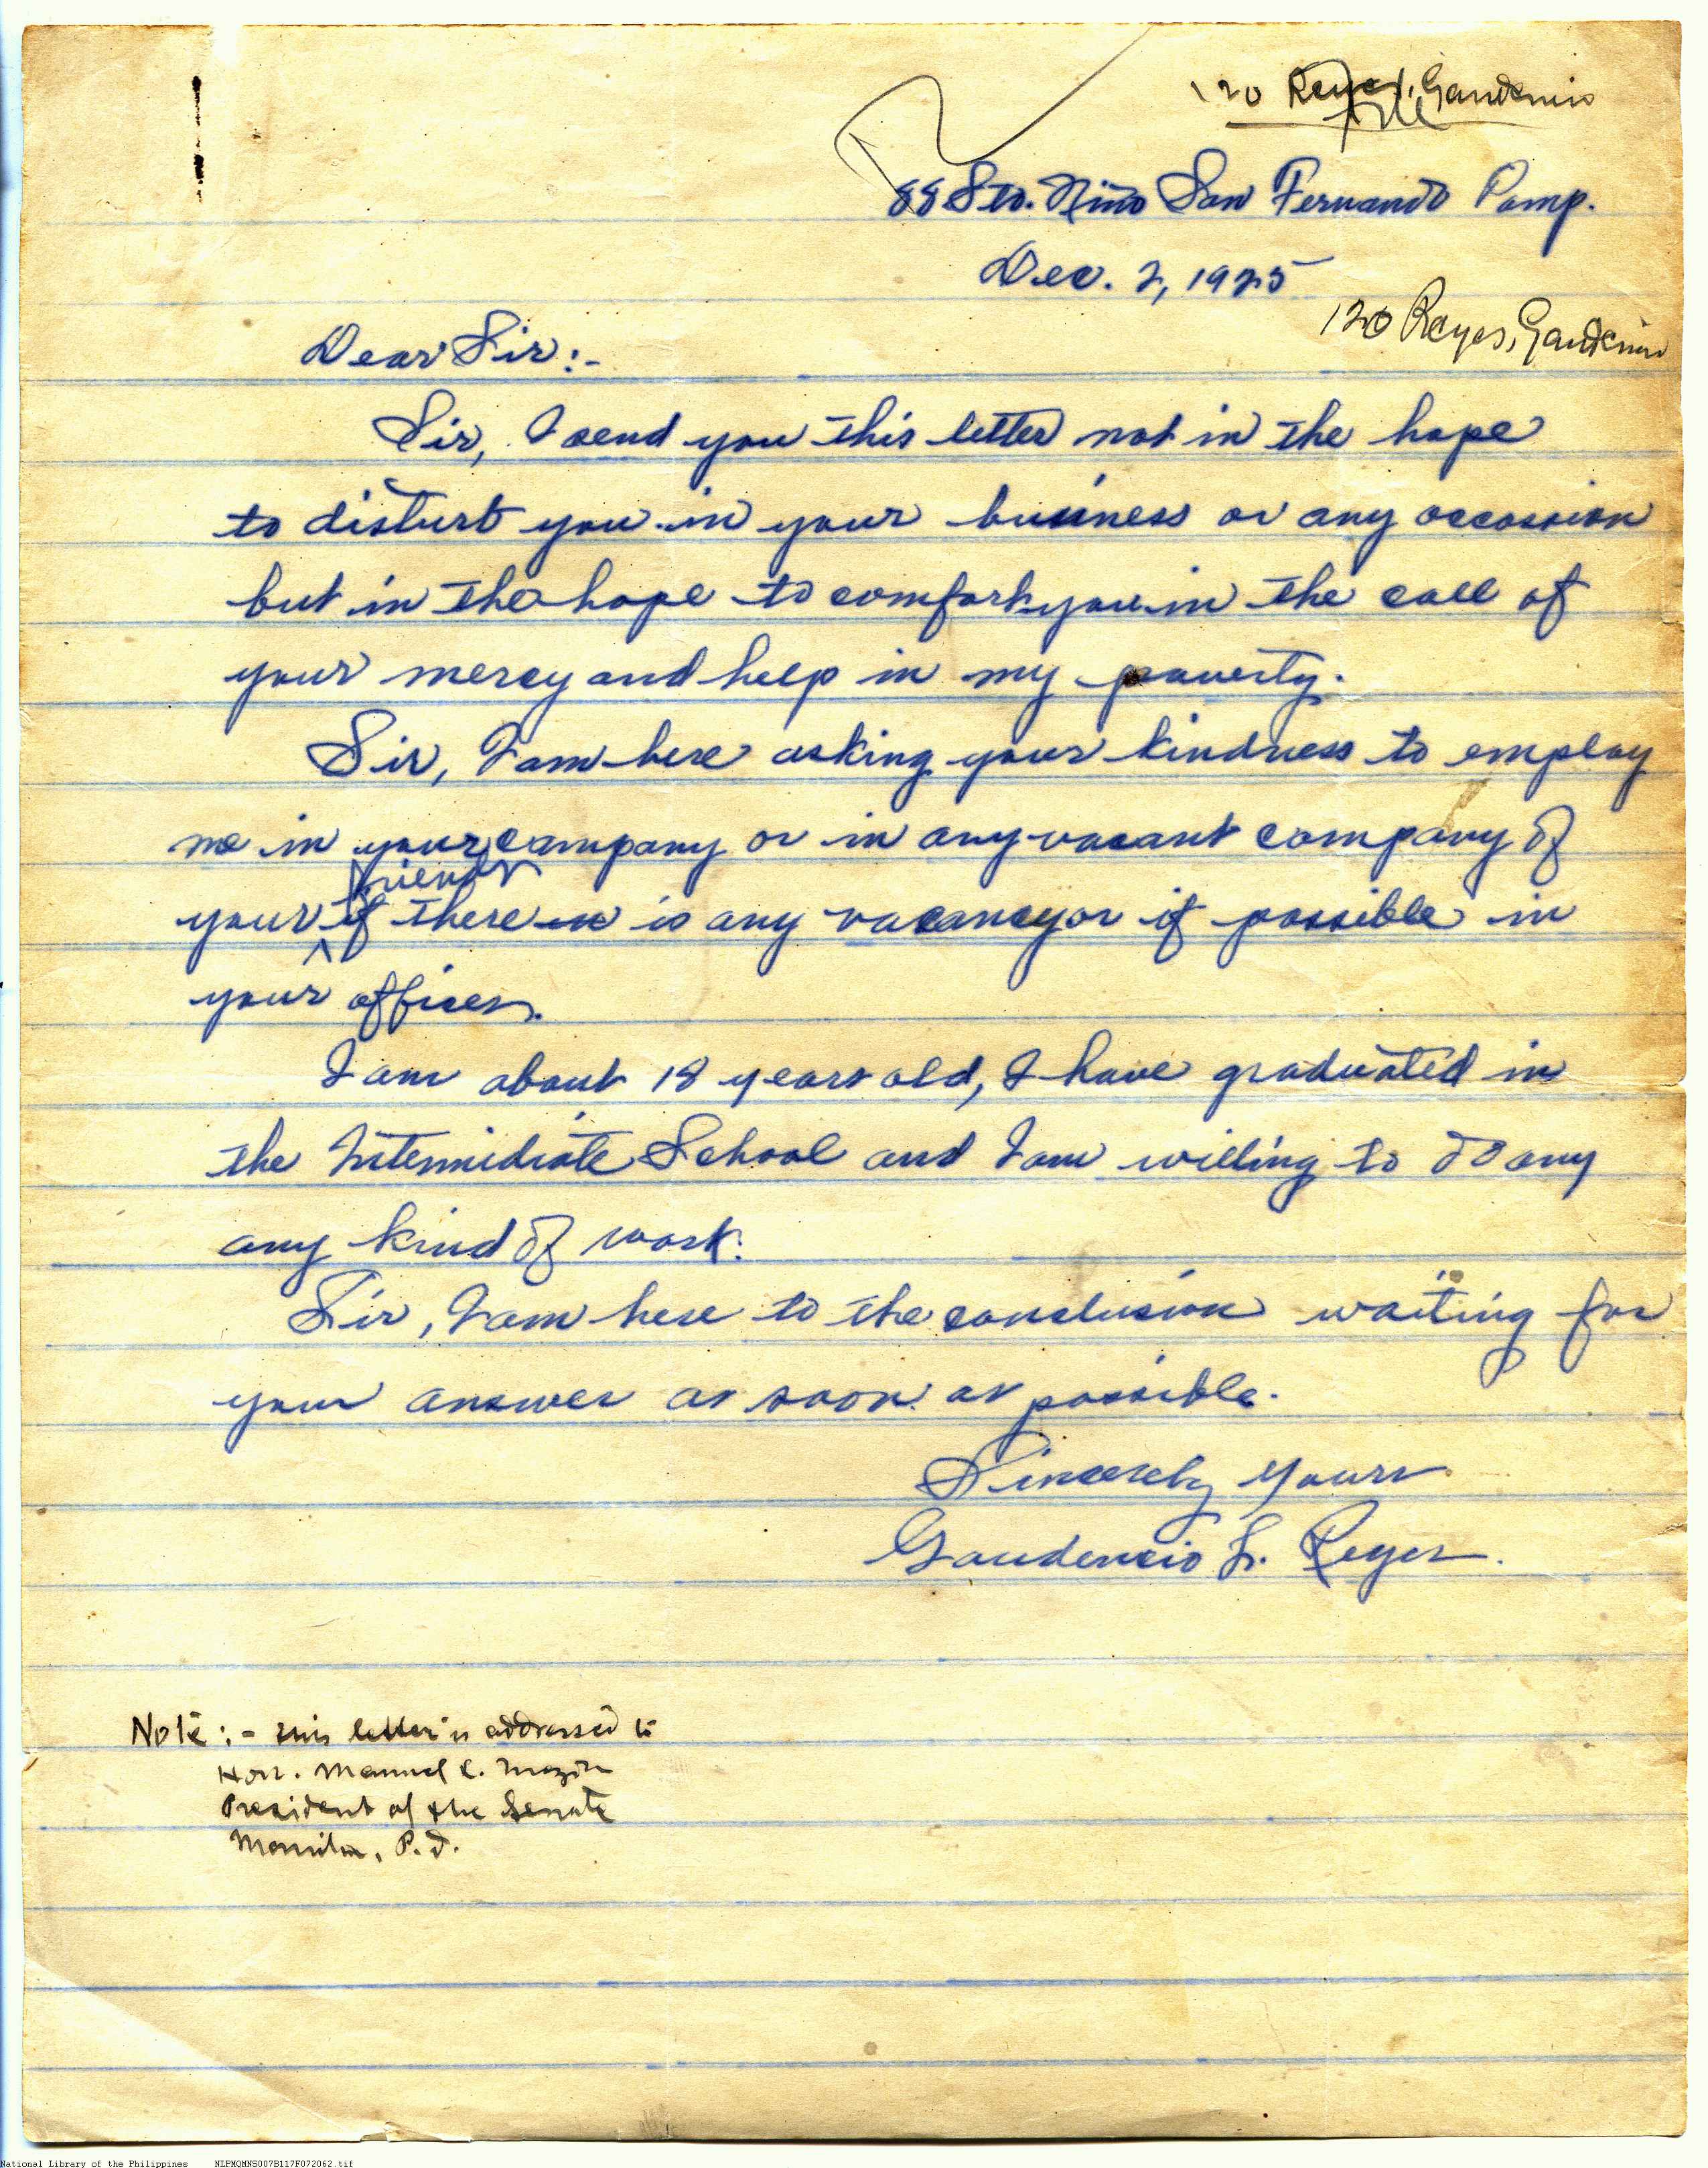 120 Reyes, Gaudencio
88 Sto. Niño San Fernando Pamp.
Dec. 2, 1925
120 Reyes, Gaudencio
Dear Sir:-
Sir, I send you this letter not in the hope
to disturb you in your business or any occassion
but in the hope to comfort you in the call of
your mercy and help in my poverty.
Sir, I am here asking your kindness to employ
me in your company or in any vacant company of
friends
your if there is any vacancy or if possible in
your offices.
I am about 18 years old, I have graduated in
the Intermidiate School and I am willing to do any
any kind of work.
Sir, I am here to the conclusion waiting for
your answer as soon as possible.
Sincerely Yours
Gaudencio S. Reyes.
Note:- this letter is addressed to
Hon. Manuel L.
President of the Senate
Manila, P.I.
National Library of the Philippines NLPMQMNS007B117F072062.tif